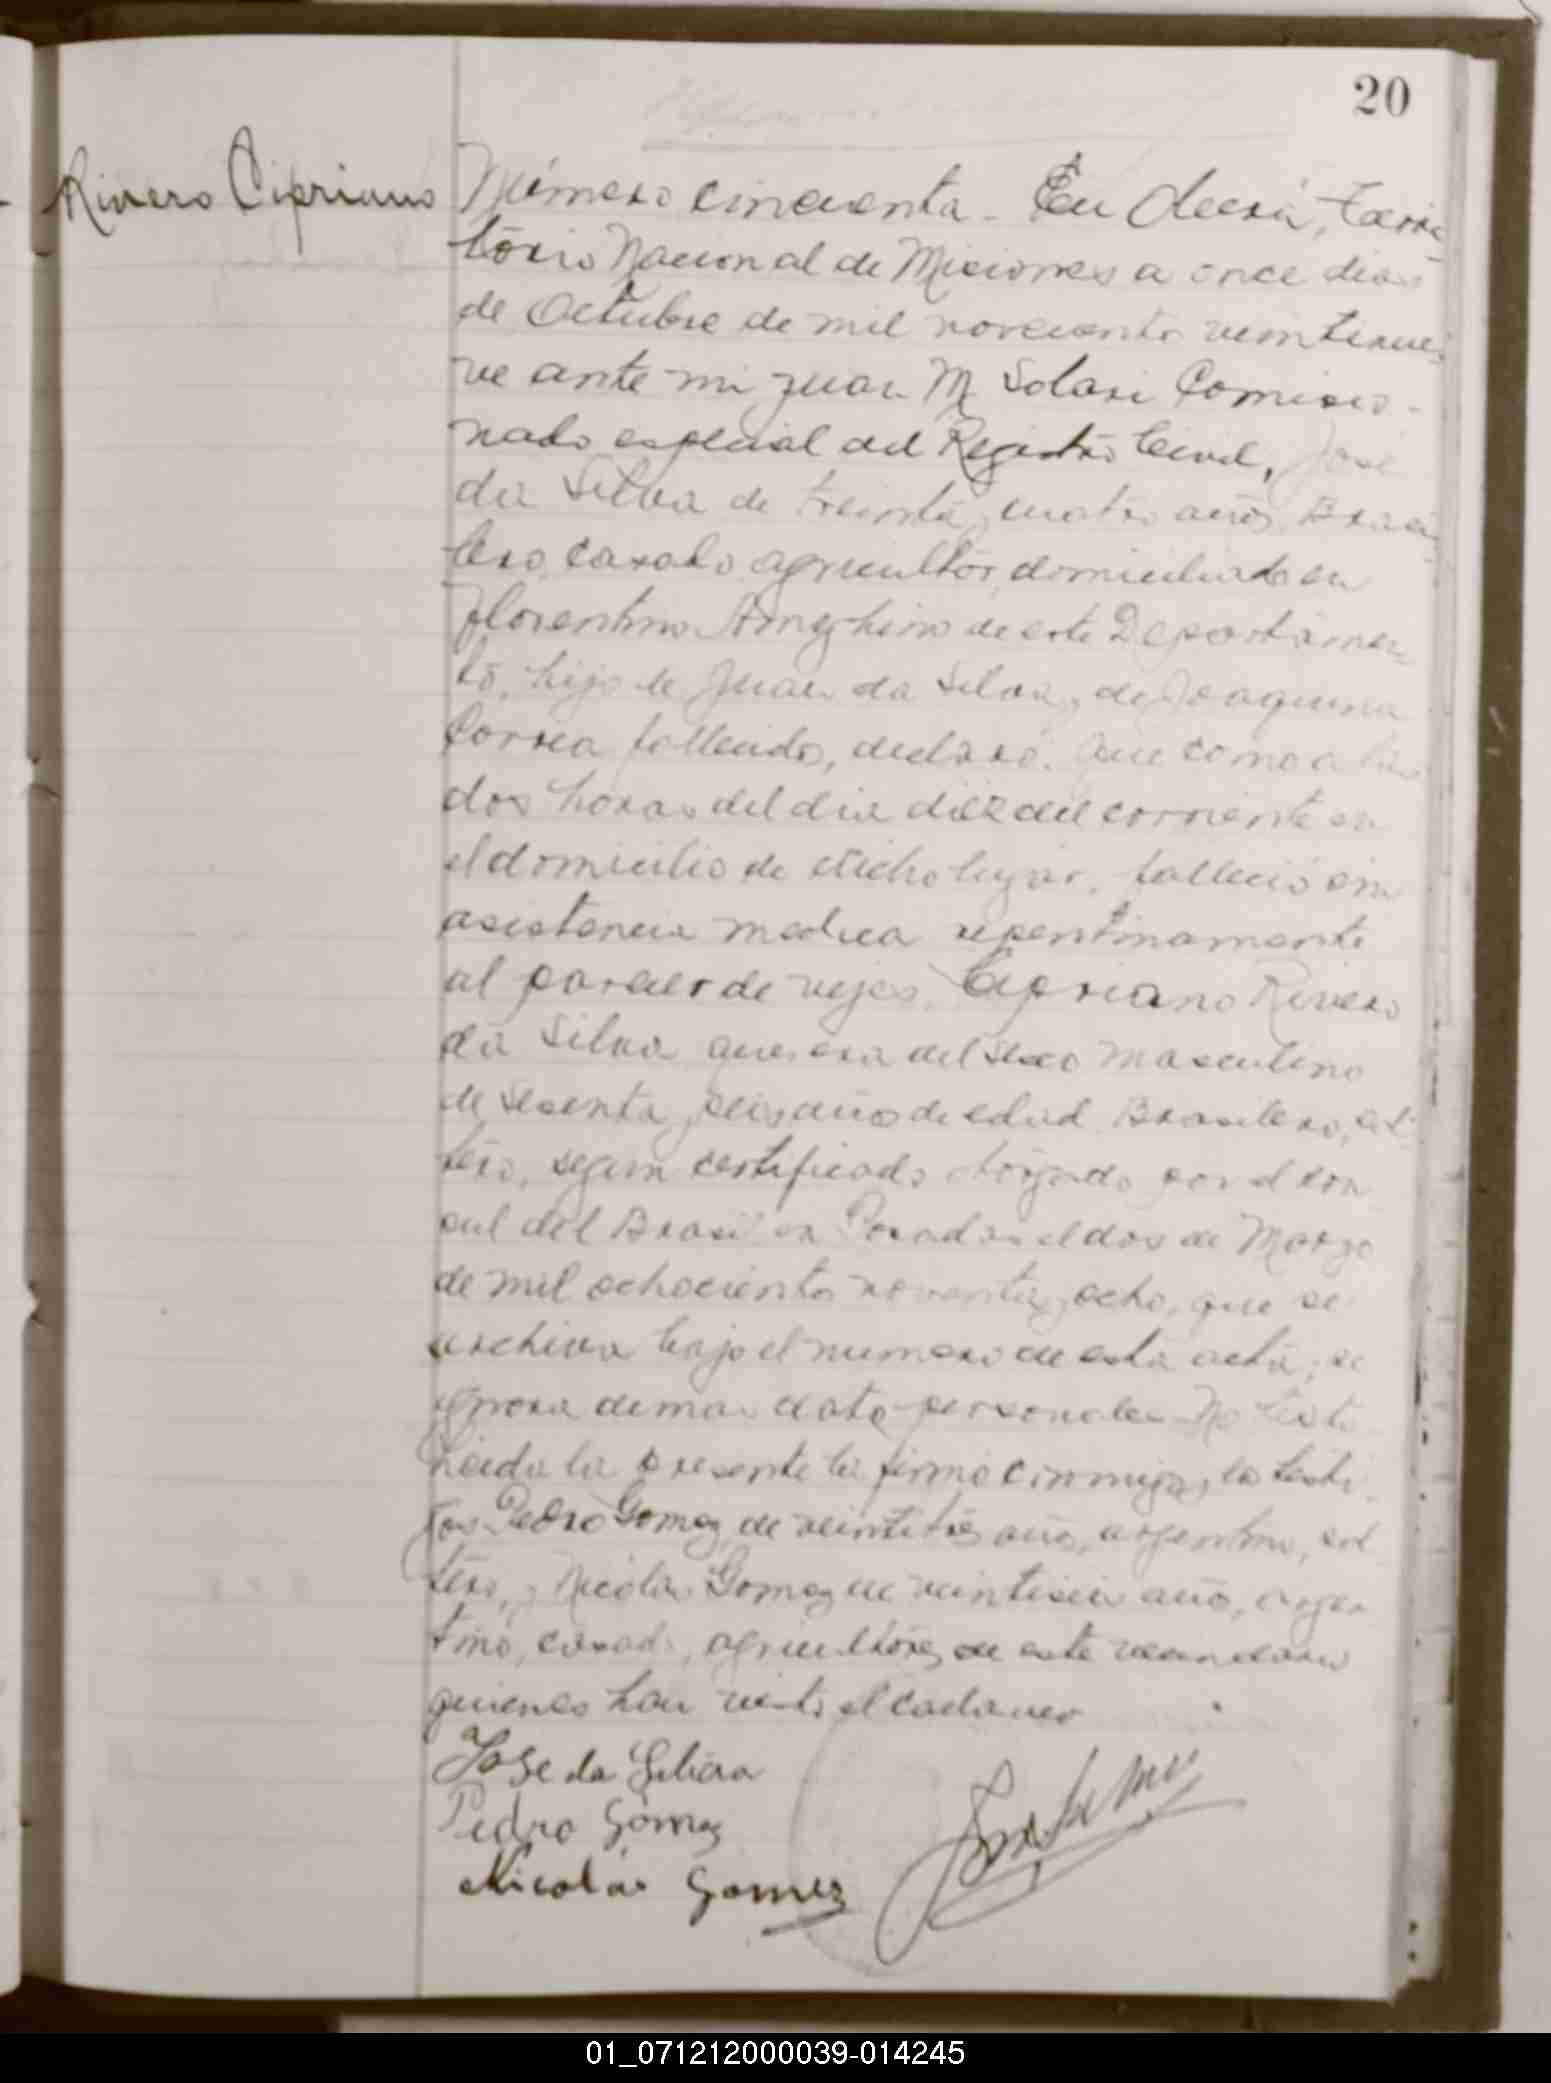 20
Rivero Cipriano
Número cincuenta - En Acerá, Terri
torio Nacional de Misiones a once dias
de Octubre de mil novecientos veintinue
ve ante mi Juan M Solari Comisio-
nado especial del Registro Civil, José
da Silva de treinta y cuatro años, Brasi
lero casado agricultor, domiciliado en
Florentino Ameghino de este Departamen
to, hijo de Juan da Silva y de Joaquina
Correa fallecidos, declaró: Que como a las
dos horas del dia diez del corriente en
el domicilio de dicho lugar, falleció sin
asistencia medica repentinamente
al parecer de vejes Cipriano Rivero
da Silva que era del sexo masculino
de sesenta y seis años de edad Brasilero, sol
tero, segun certificado otorgado por el con
sul del Brasil en Posadas el dos de Marzo
de mil ochocientos noventa y ocho, que se
archiva bajo el numero de esta acta, se
ignora demas datos personales No testó
Leida la presente la firmó conmigo y los testi
gos Pedro Gomez, de veintitres años, argentino, sol
tero, y Nicolás Gomez de veintiseis años, argen
tino, casado, agricultores de este vecindario
quienes han visto el cadaver
Jose da Silva
Pedro Gómez
Nicolás Gomez
01_071212000039-014245